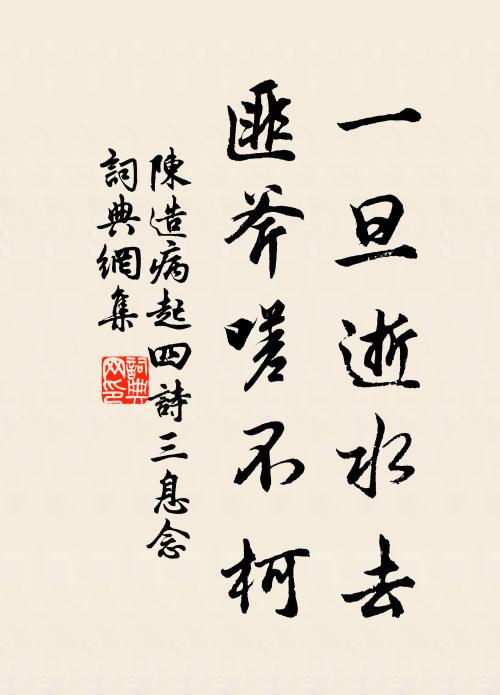 一旦逝水去
匪斧嗟不柯
陳造病起四詩三息念
詞典網集
詞典网印